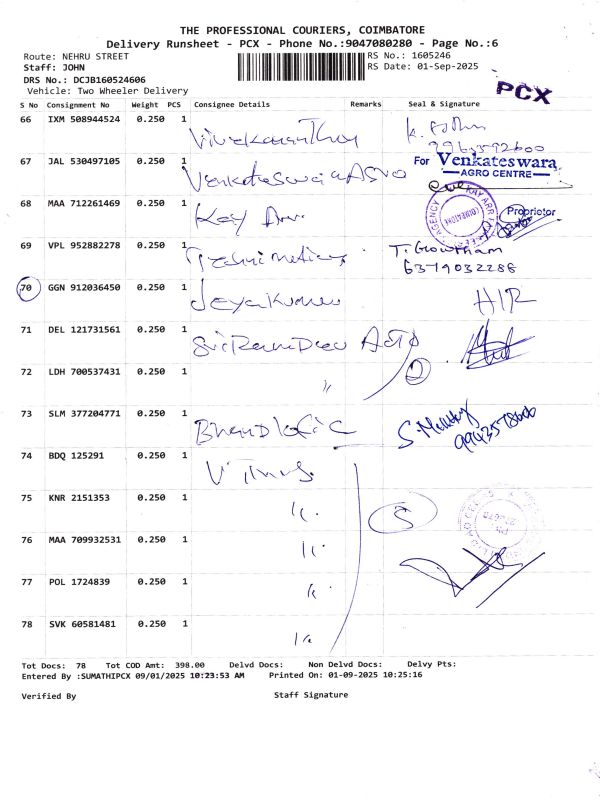 THE PROFESSIONAL COURIERS, COIMBATORE
Delivery Runsheet - PCX - Phone No.:9047080280 - Page No.:6
Route: NEHRU STREET
RS No.: 1605246
Staff: JOHN
RS Date: 01-Sep-2025
DRS No.: DCJB160524606
Vehicle: Two Wheeler Delivery
PCX
S No Consignment No Weight PCS Consignee Details Remarks Seal & Signature
66 IXM 508944524 0.250 1
67 JAL 530497105 0.250 1 For Venkateswara
AGRO CENTRE
68 MAA 712261469 0.250 1 Kay
Proprietor
69 VPL 952882278 0.250 1 T. Gowtham
6379032288
70 GGN 912036450 0.250 1 Jeyakumar
71 DEL 121731561 0.250 1
72 LDH 700537431 0.250 1 〃 2
73 SLM 377204771 0.250 1
74 BDQ 125291 0.250 1
75 KNR 2151353 0.250 1 〃 5
76 MAA 709932531 0.250 1 〃
77 POL 1724839 0.250 1 〃
78 SVK 60581481 0.250 1 〃
Tot Docs: 78 Tot COD Amt: 398.00 Delvd Docs: Non Delvd Docs: Delvy Pts:
Entered By :SUMATHIPCX 09/01/2025 10:23:53 AM Printed On: 01-09-2025 10:25:16
Verified By Staff Signature